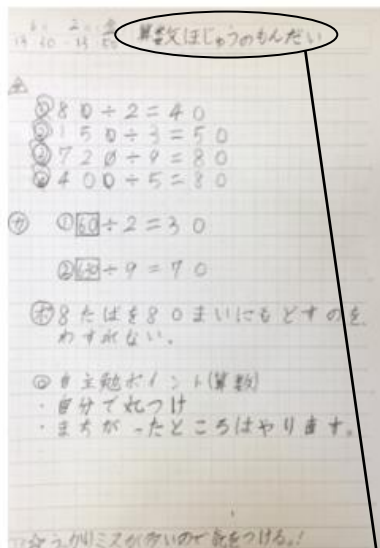 算数ほじゅうのもんだい
①80÷2=40
②150÷3=50
③720÷9=80
④400÷5=80
①60÷2=30
②630÷9=70
8たばを80まいにもどすのを、
わすれない。
◎自主勉ポイント(算数)
・自分で丸つけ
・まちがったところはやります。
うっかりミスが多いので気をつける。!